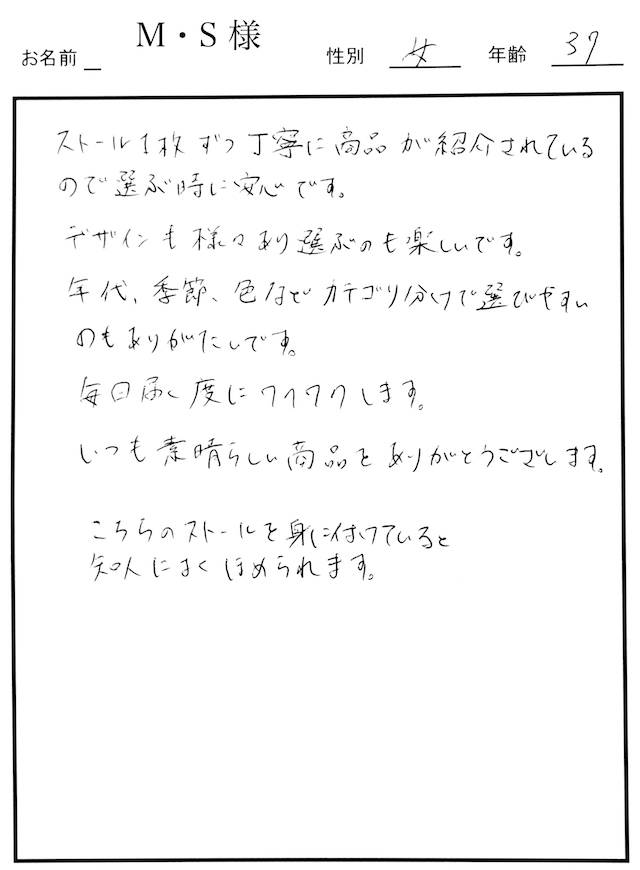 お名前 M・S 様 性別 女 年齢 37
ストール1枚ずつ丁寧に商品が紹介されている
ので選ぶ時に安心です。
デザインも様々あり選ぶのも楽しいです。
年代、季節、色などカテゴリ分けで選びやすい
のもありがたいです。
毎回届く度にワクワクします。
いつも素晴らしい商品をありがとうございます。
こちらのストールを身に付けていると
知人によくほめられます。